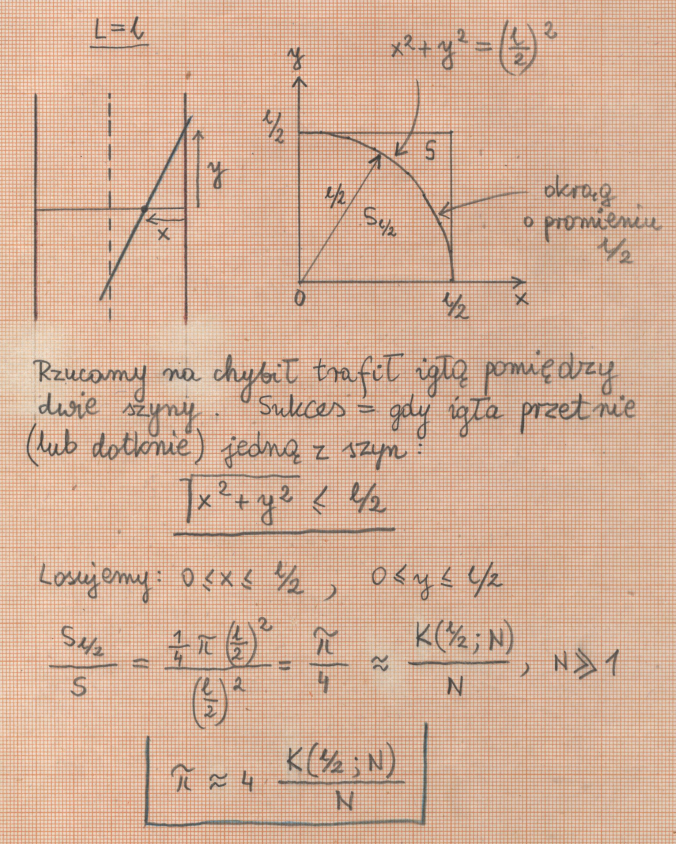 L = l
x² + y² = (l/2)²
y
l/2
S
y
l/2
S l/2
okrąg
o promieniu
l/2
x
0
l/2
x
Rzucamy na chybił trafił igłą pomiędzy
dwie szyny. Sukces = gdy igła przetnie
(lub dotknie) jedną z szyn:
√x² + y² ≤ l/2
Losujemy: 0 ≤ x ≤ l/2 , 0 ≤ y ≤ l/2
S l/2 / S = ¼ π (l/2)² / (l/2)² = π/4 ≈ K(l/2 ; N) / N , N ≫ 1
π ≈ 4 · K(l/2 ; N) / N